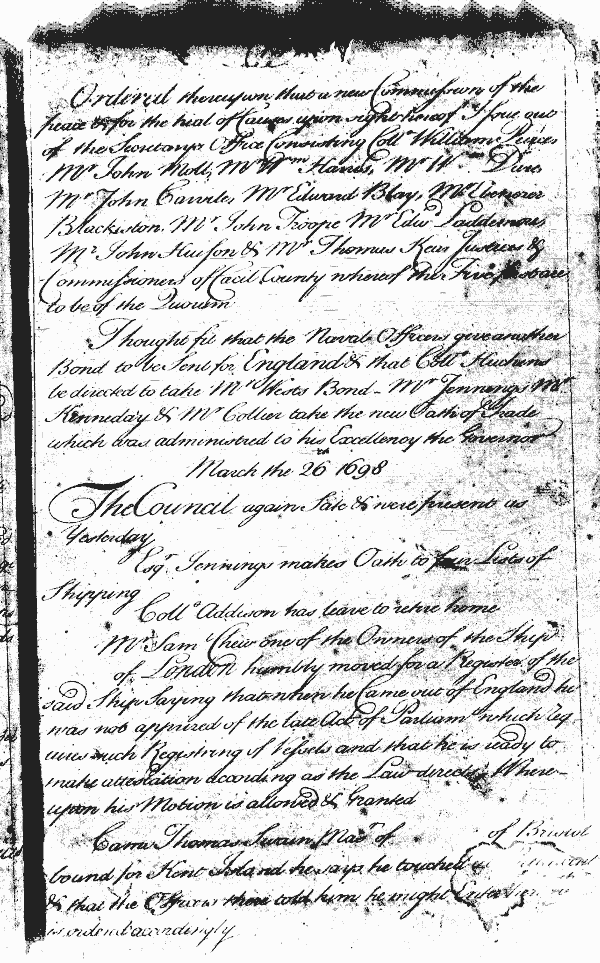 Ordered thereupon that a new Commission of the
peace & for the trial of Causes upon right hereof Issue out
of the Secretarys Office Consisting Coll.o William Peirce
Mr John Moll, Mr Wm Harris, Mr Wm Dare
Mr John Carvile, Mr Edward Blay, Mr Ebenezer
Blackiston, Mr John Troope Mr Edwd Laddemore
Mr John Hudson & Mr Thomas Keir Justices &
Commissioners of Cacil County whereof the Five first are
to be of the Quorum
Thought fit that the Naval Officers give another
Bond to be Sent for England & that Collo Huchins
be directed to take Mr Wests Bond - Mr Jennings Mr
Kenneday & Mr Collier take the new Oath of Trade
which was administred to his Excellency the Governor
March the 26th 1698
The Council again Sate & were present as
Yesterday
Esqr Jennings makes Oath to four Lists of
Shipping
Collo Addison has leave to retire home
Mr Sam Chew one of the Owners of the Ship
of London humbly moved for a Register of the
said Ship Saying that when he Came out of England he
was not apprized of the late Act of Parliamt which Req
uires such Registring of Vessels and that he is ready to
make attestation according as the Law directs Where-
upon his Motion is allowed & Granted
Came Thomas Swain Mar of of Bristol
bound for Kent Island he says he touched
& that the Officers there told him he might Enter
is ordered accordingly